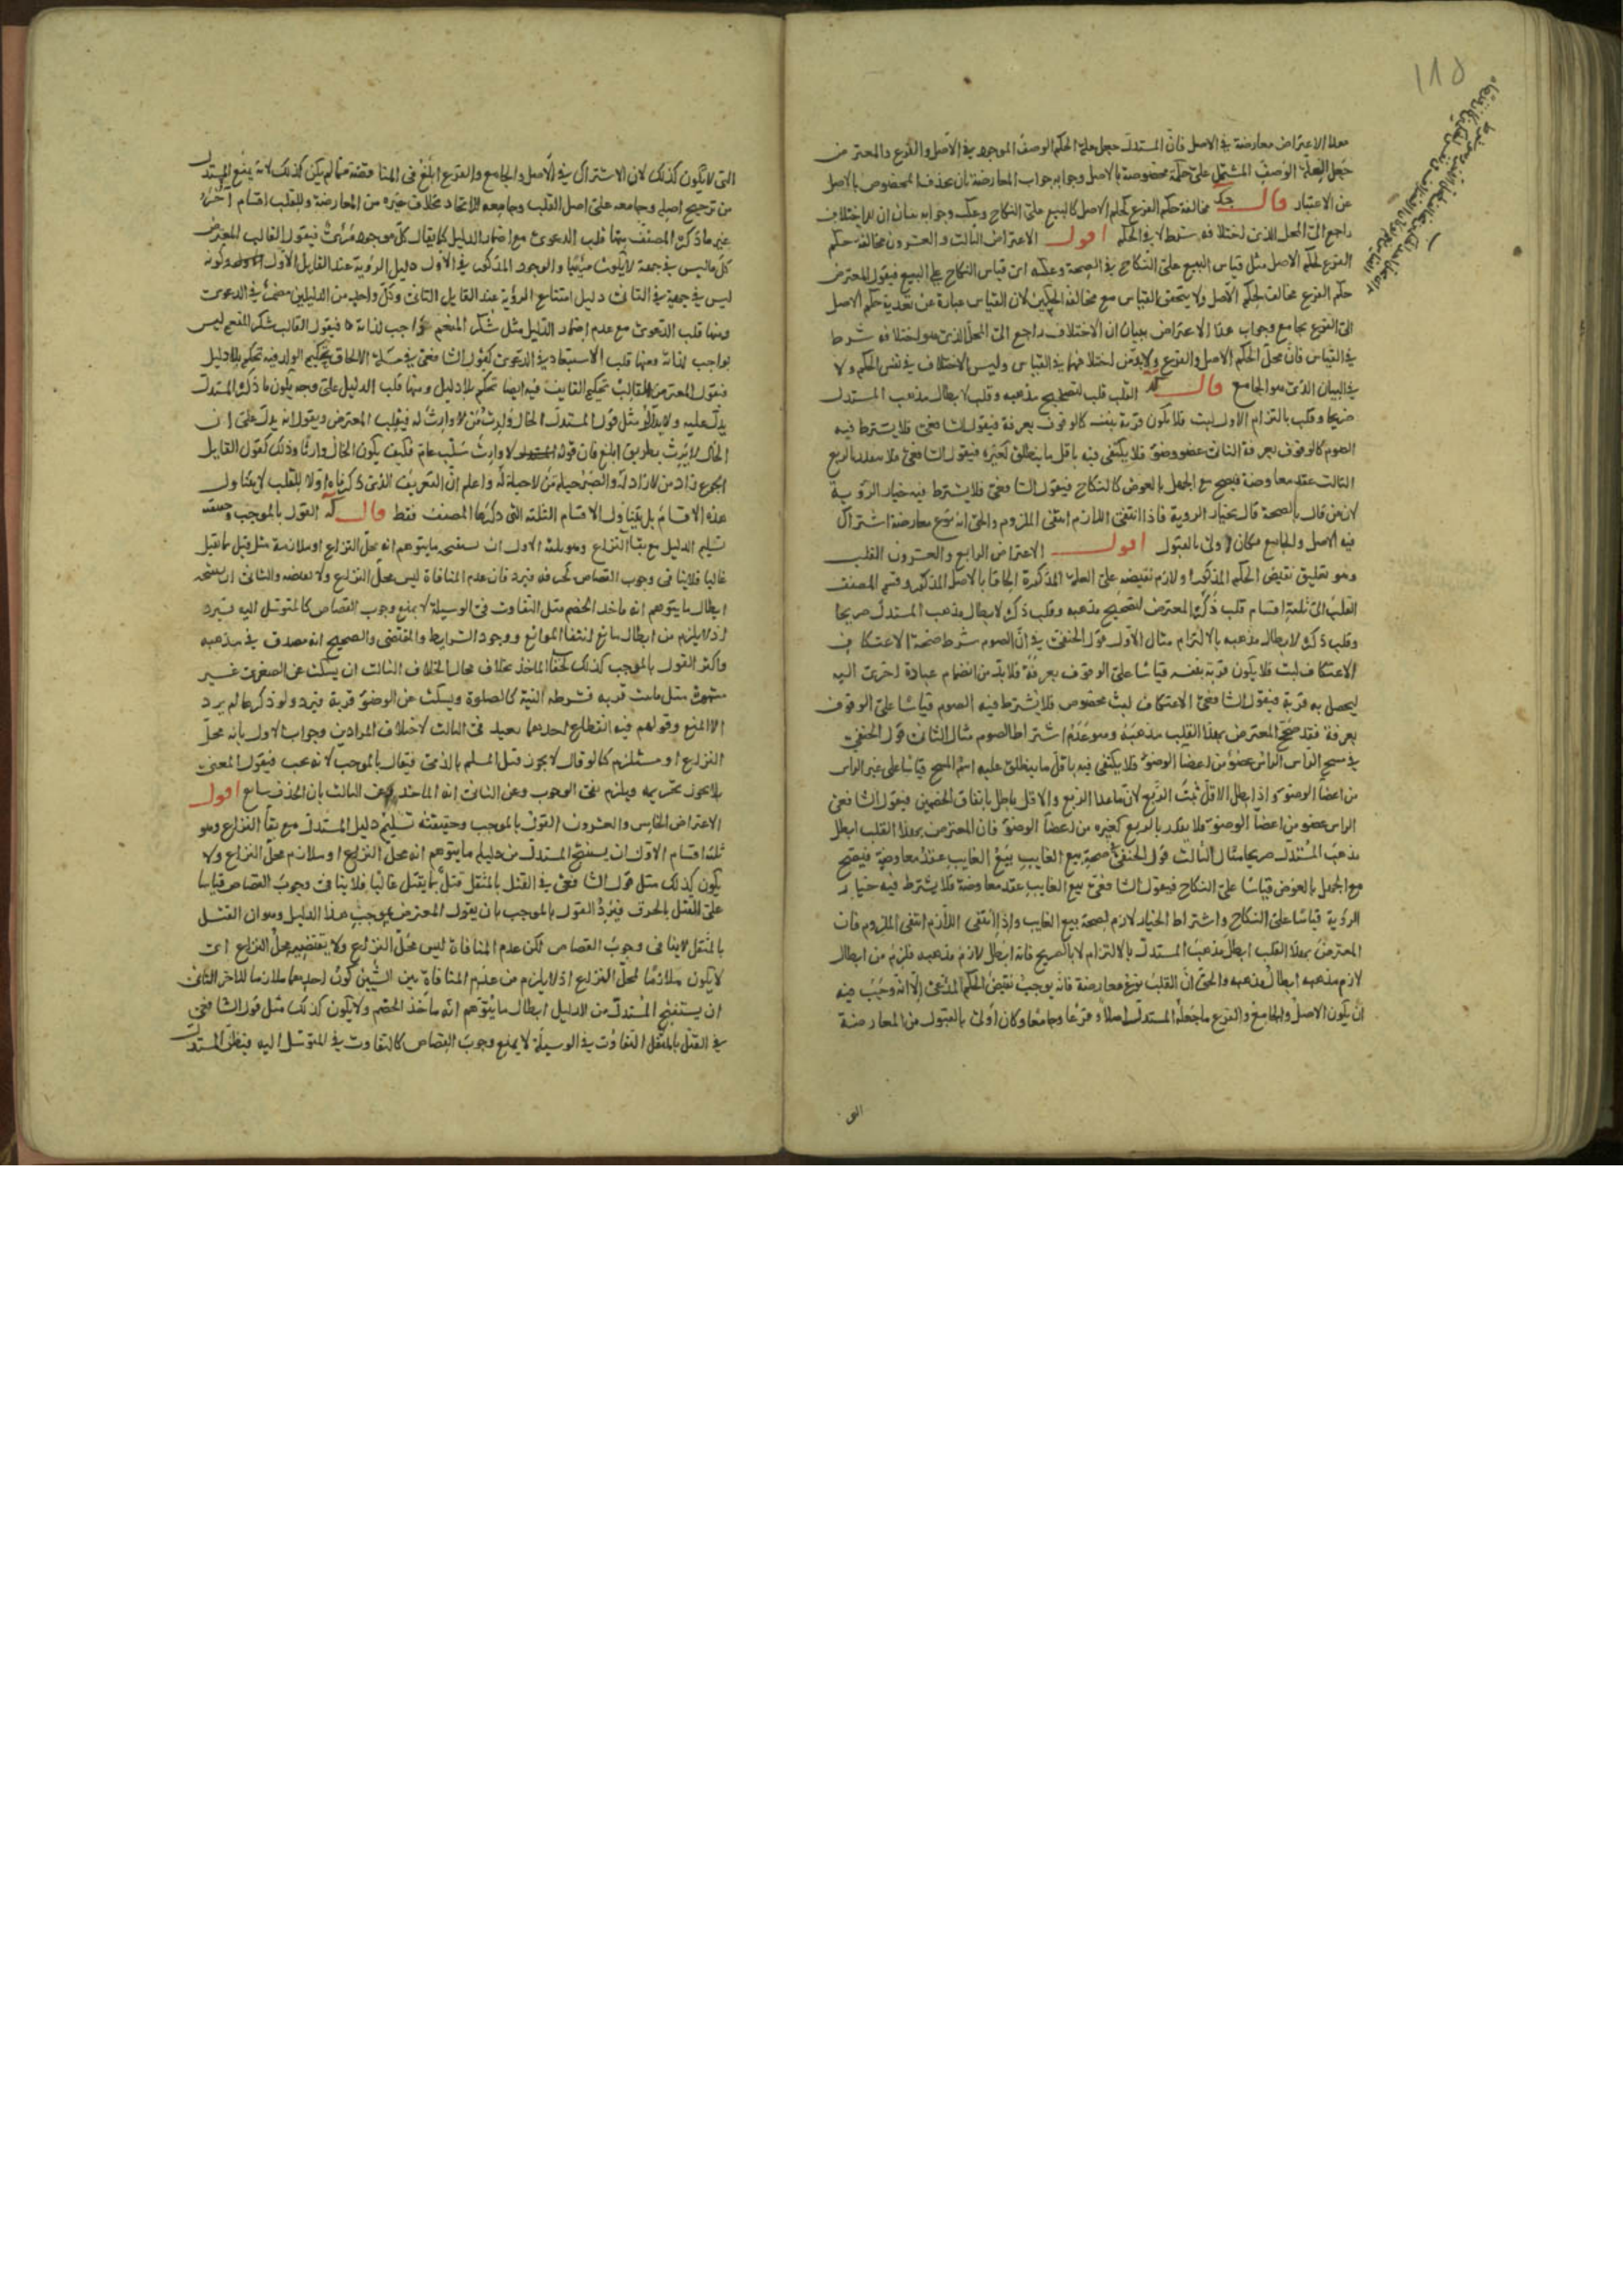 ١١٥
هذا الاعتراض معارضة في الاصل فان المستدل جعل علة الحكم الوصف الموجود في الاصل والفرع والمعترض
جعل العلة الوصف المشتمل على حكمة مخصوصة بالاصل وجوابه جواب المعارضة بان يحذف المخصوص بالاصل
عن الاعتبار قال مخالفة حكم الفرع لحكم الاصل كالبيع على النكاح وعكسه وجوابه ببيان ان الاختلاف
راجع الى المحل الذي اختلافه شرط لا في الحكم اقول الاعتراض الثالث والعشرون مخالفة حكم
الفرع لحكم الاصل مثل قياس البيع على النكاح في الصحة وعكسه اى قياس النكاح على البيع فيقول المعترض
حكم الفرع مخالف لحكم الاصل ولا يتحقق القياس مع مخالفة الحكمين لان القياس عبارة عن تعدية حكم الاصل
الى الفرع بجامع وجواب هذا الاعتراض ببيان ان الاختلاف راجع الى المحل الذي هو اختلافه شرط
في القياس فان محل الحكم الاصل والفرع ولا بد من اختلافهما في القياس وليس الاختلاف في نفس الحكم ولا
في البيان الذي هو الجامع قال القلب قلب لتصحيح مذهبه وقلب لابطال مذهب المستدل
صريحا وقلب بالتزام الاول لبث فلا يكون قربة بنفسه كالوقوف بعرفة فيقول الشافعي فلا يشترط فيه
الصوم كالوقوف بعرفة الثاني عضو وضوء فلا يكتفى فيه باقل ما ينطلق كغيره فيقول الشافعي فلا يتقدر بالربع
الثالث عقد معاوضة فيصح مع الجهل بالعوض كالنكاح فيقول الشافعي فلا يشترط فيه خيار الرؤية
لان من قال بالصحة قال بخيار الروية فاذا انتفى اللازم انتفى الملزوم والحق انه نوع معارضة اشتراك
فيه الاصل والجامع فكان اولى بالقبول اقول الاعتراض الرابع والعشرون القلب
وهو تعليق نقيض الحكم المذكور او لازم نقيضه على العلة المذكورة الحاقا بالاصل المذكور وقسم المصنف
القلب الى ثلثة اقسام قلب ذكره المعترض لتصحيح مذهبه وقلب ذكره لابطال مذهب المستدل صريحا
وقلب ذكره لابطال مذهبه بالالتزام مثال الاول قول الحنفي في ان الصوم شرط صحة الاعتكاف
الاعتكاف لبث فلا يكون قربة بنفسه قياسا على الوقوف بعرفة فلا بد من انضمام عبادة اخرى اليه
ليحصل به قربة فيقول الشافعي الاعتكاف لبث مخصوص فلا يشترط فيه الصوم قياسا على الوقوف
بعرفة فقد صحح المعترض بهذا القلب مذهبه وهو عدم اشتراط الصوم مثال الثاني قول الحنفي
في مسح الراس الراس عضو من اعضا الوضوء فلا يكتفى فيه باقل ما ينطلق عليه اسم المسح قياسا على غير الراس
من اعضا الوضوء واذا بطل الاقل ثبت الربع لان ما عدا الربع والاقل باطل باتفاق الخصمين فيقول الشافعي
الراس عضو من اعضا الوضوء فلا يقدر بالربع كغيره من اعضا الوضوء فان المعترض بهذا القلب ابطل
مذهب المستدل صريحا مثال الثالث قول الحنفي في صحة بيع الغايب بيع الغايب عقد معاوضة فيصح
مع الجهل بالعوض قياسا على النكاح فيقول الشافعي بيع الغايب عقد معاوضة فلا يشترط فيه خيار
الرؤية قياسا على النكاح واشتراط الخيار لازم لصحة بيع الغايب واذا انتفى اللازم انتفى الملزوم فان
المعترض بهذا القلب ابطل مذهب المستدل بالالتزام لا بالصريح فانه ابطل لازم مذهبه فلزم من ابطال
لازم مذهبه ابطال مذهبه والحق ان القلب نوع معارضة فانه يوجب نقيض الحكم المدعى الا انه وجب فيه
ان يكون الاصل والجامع والفرع ما جعله المستدل اصلا وفرعا وجامعا وكان اولى بالقبول من المعارضة
التى
التى لا يكون كذلك لان الاشتراك في الاصل والجامع والفرع ابلغ فى المناقضة مما لم يكن كذلك لانه يمنع المستدل
من ترجيح اصله وجامعه على اصل القلب وجامعه للاتحاد بخلاف غيره من المعارضة وللقلب اقسام اخر
غير ما ذكره المصنف منها قلب الدعوى مع اضمار الدليل كما يقال كل موجود مرئى فيقول القالب المعترض
كل ما ليس في جهة لا يكون مرئيا والوجود المذكور في الاول دليل الرؤية عند القايل الاول وكونه
ليس في جهة في الثانى دليل امتناع الرؤية عند القايل الثاني وكل واحد من الدليلين مضمر في الدعوى
ومنها قلب الدعوى مع عدم اضمار الدليل مثل شكر المنعم واجب لذاته فيقول القالب شكر المنعم ليس
بواجب لذاته ومنها قلب الاستبعاد في الدعوى كقول الشافعي في مسئلة الالحاق تحكيم الولد فيه تحكم بلا دليل
فيقول المعترض القالب تحكيم القايف فيه ايضا تحكم بلا دليل ومنها قلب الدليل على وجه يكون ما ذكره المستدل
يدل عليه ولا يدل له مثل قول المستدل الخال وارث من لا وارث له فيقلب المعترض ويقول انه يدل على ان
الخال لا يرث بطريق ابلغ فان قوله لا وارث سلب عام فكيف يكون الخال وارثا وذلك كقول القايل
الجوع زاد من لا زاد له والصبر حيلة من لا حيلة له واعلم ان التعريف الذي ذكرناه اولا للقلب لا يتناول
هذه الاقسام بل يتناول الاقسام الثلثة التى ذكرها المصنف فقط قال القول بالموجب وحقيقته
تسليم الدليل مع بقا النزاع وهو ثلثة الاول ان يستنتجه ما يتوهم انه محل النزاع او ملازمه مثل قتل بما يقتل
غالبا فلا ينافى وجوب القصاص كحرقه فيرد فان عدم المنافاة ليس محل النزاع ولا يقتضيه والثانى ان يستنتجه
ابطال ما يتوهم انه ماخذ الخصم مثل التفاوت فى الوسيلة لا يمنع وجوب القصاص كالمتوسل اليه فيرد
اذ لا يلزم من ابطال مانع انتفا الموانع ووجود الشرايط والمقتضى والصحيح انه مصدق في مذهبه
واكثر القول بالموجب كذلك لخفا الماخذ بخلاف محال الخلاف الثالث ان يسكت عن الصغرى غير
مشهورة مثل ما ثبت قربة فشرطه النية كالصلوة ويسكت عن الوضوء قربة فيرد ولو ذكرها لم يرد
الا المنع وقولهم فيه انقطاع احدهما بعيد فى الثالث لاختلاف المرادين وجواب الاول بانه محل
النزاع او مستلزم كما لو قال لا يجوز قتل المسلم بالذمى فيقال بالموجب لانه يجب فيقول المعنى
بلا يجوز تحريمه ويلزم نفى الوجوب وعن الثانى انه الماخذ وعن الثالث بان الحذف سايغ اقول
الاعتراض الخامس والعشرون القول بالموجب وحقيقته تسليم دليل المستدل مع بقا النزاع وهو
ثلثة اقسام الاول ان يستنتج المستدل من دليله ما يتوهم انه محل النزاع او ملازم محل النزاع ولا
يكون كذلك مثل قول الشافعي في القتل بالمثقل قتل بما يقتل غالبا فلا ينافى وجوب القصاص قياسا
على القتل بالحرق فيرد القول بالموجب بان يقول المعترض بموجب هذا الدليل وهو ان القتل
بالمثقل لا ينافى وجوب القصاص لكن عدم المنافاة ليس محل النزاع ولا يقتضيه محل النزاع اى
لا يكون ملازما لمحل النزاع اذ لا يلزم من عدم المنافاة بين الشيئين كون احدهما ملازما للاخر الثانى
ان يستنتج المستدل من الدليل ابطال ما يتوهم انه ماخذ الخصم ولا يكون كذلك مثل قول الشافعي
في القتل بالمثقل التفاوت في الوسيلة لا يمنع وجوب القصاص كالتفاوت في المتوسل اليه فيظن المستدل